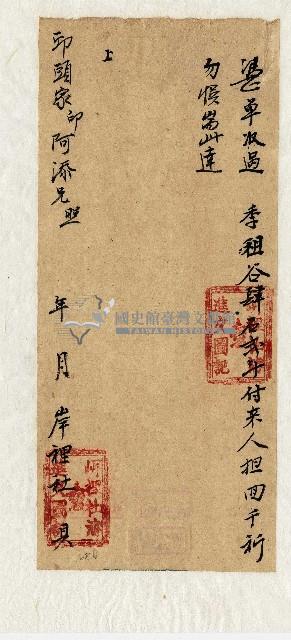 憑單收過 季租谷肆石弍斗付來人担回千祈
勿悞耑此達
上
邱頭家印阿添兄照
年 月 岸裡社 具
國史館臺灣文獻館
TAIWAN HISTORICA
圖記